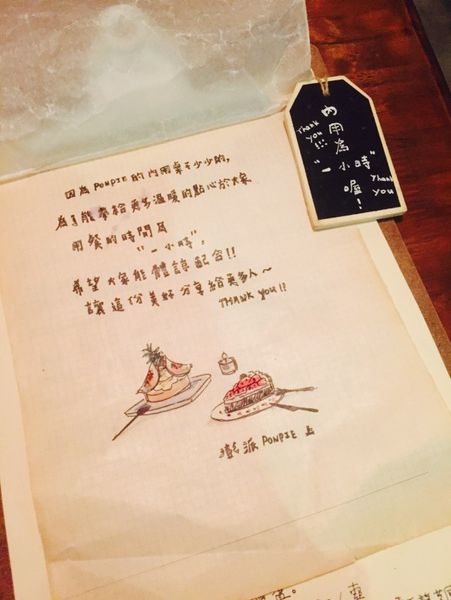 因為 PONPIE 的內用桌子少少的,
為了能奉給更多溫暖的點心於大家
用餐的時間為
"一小時",
希望大家能體諒配合!!
讓這份美好分享給更多人~
THANK YOU!!
澎派 PONPIE 上
內用為
"一小時"
喔!
Thank you!!!
Thank you